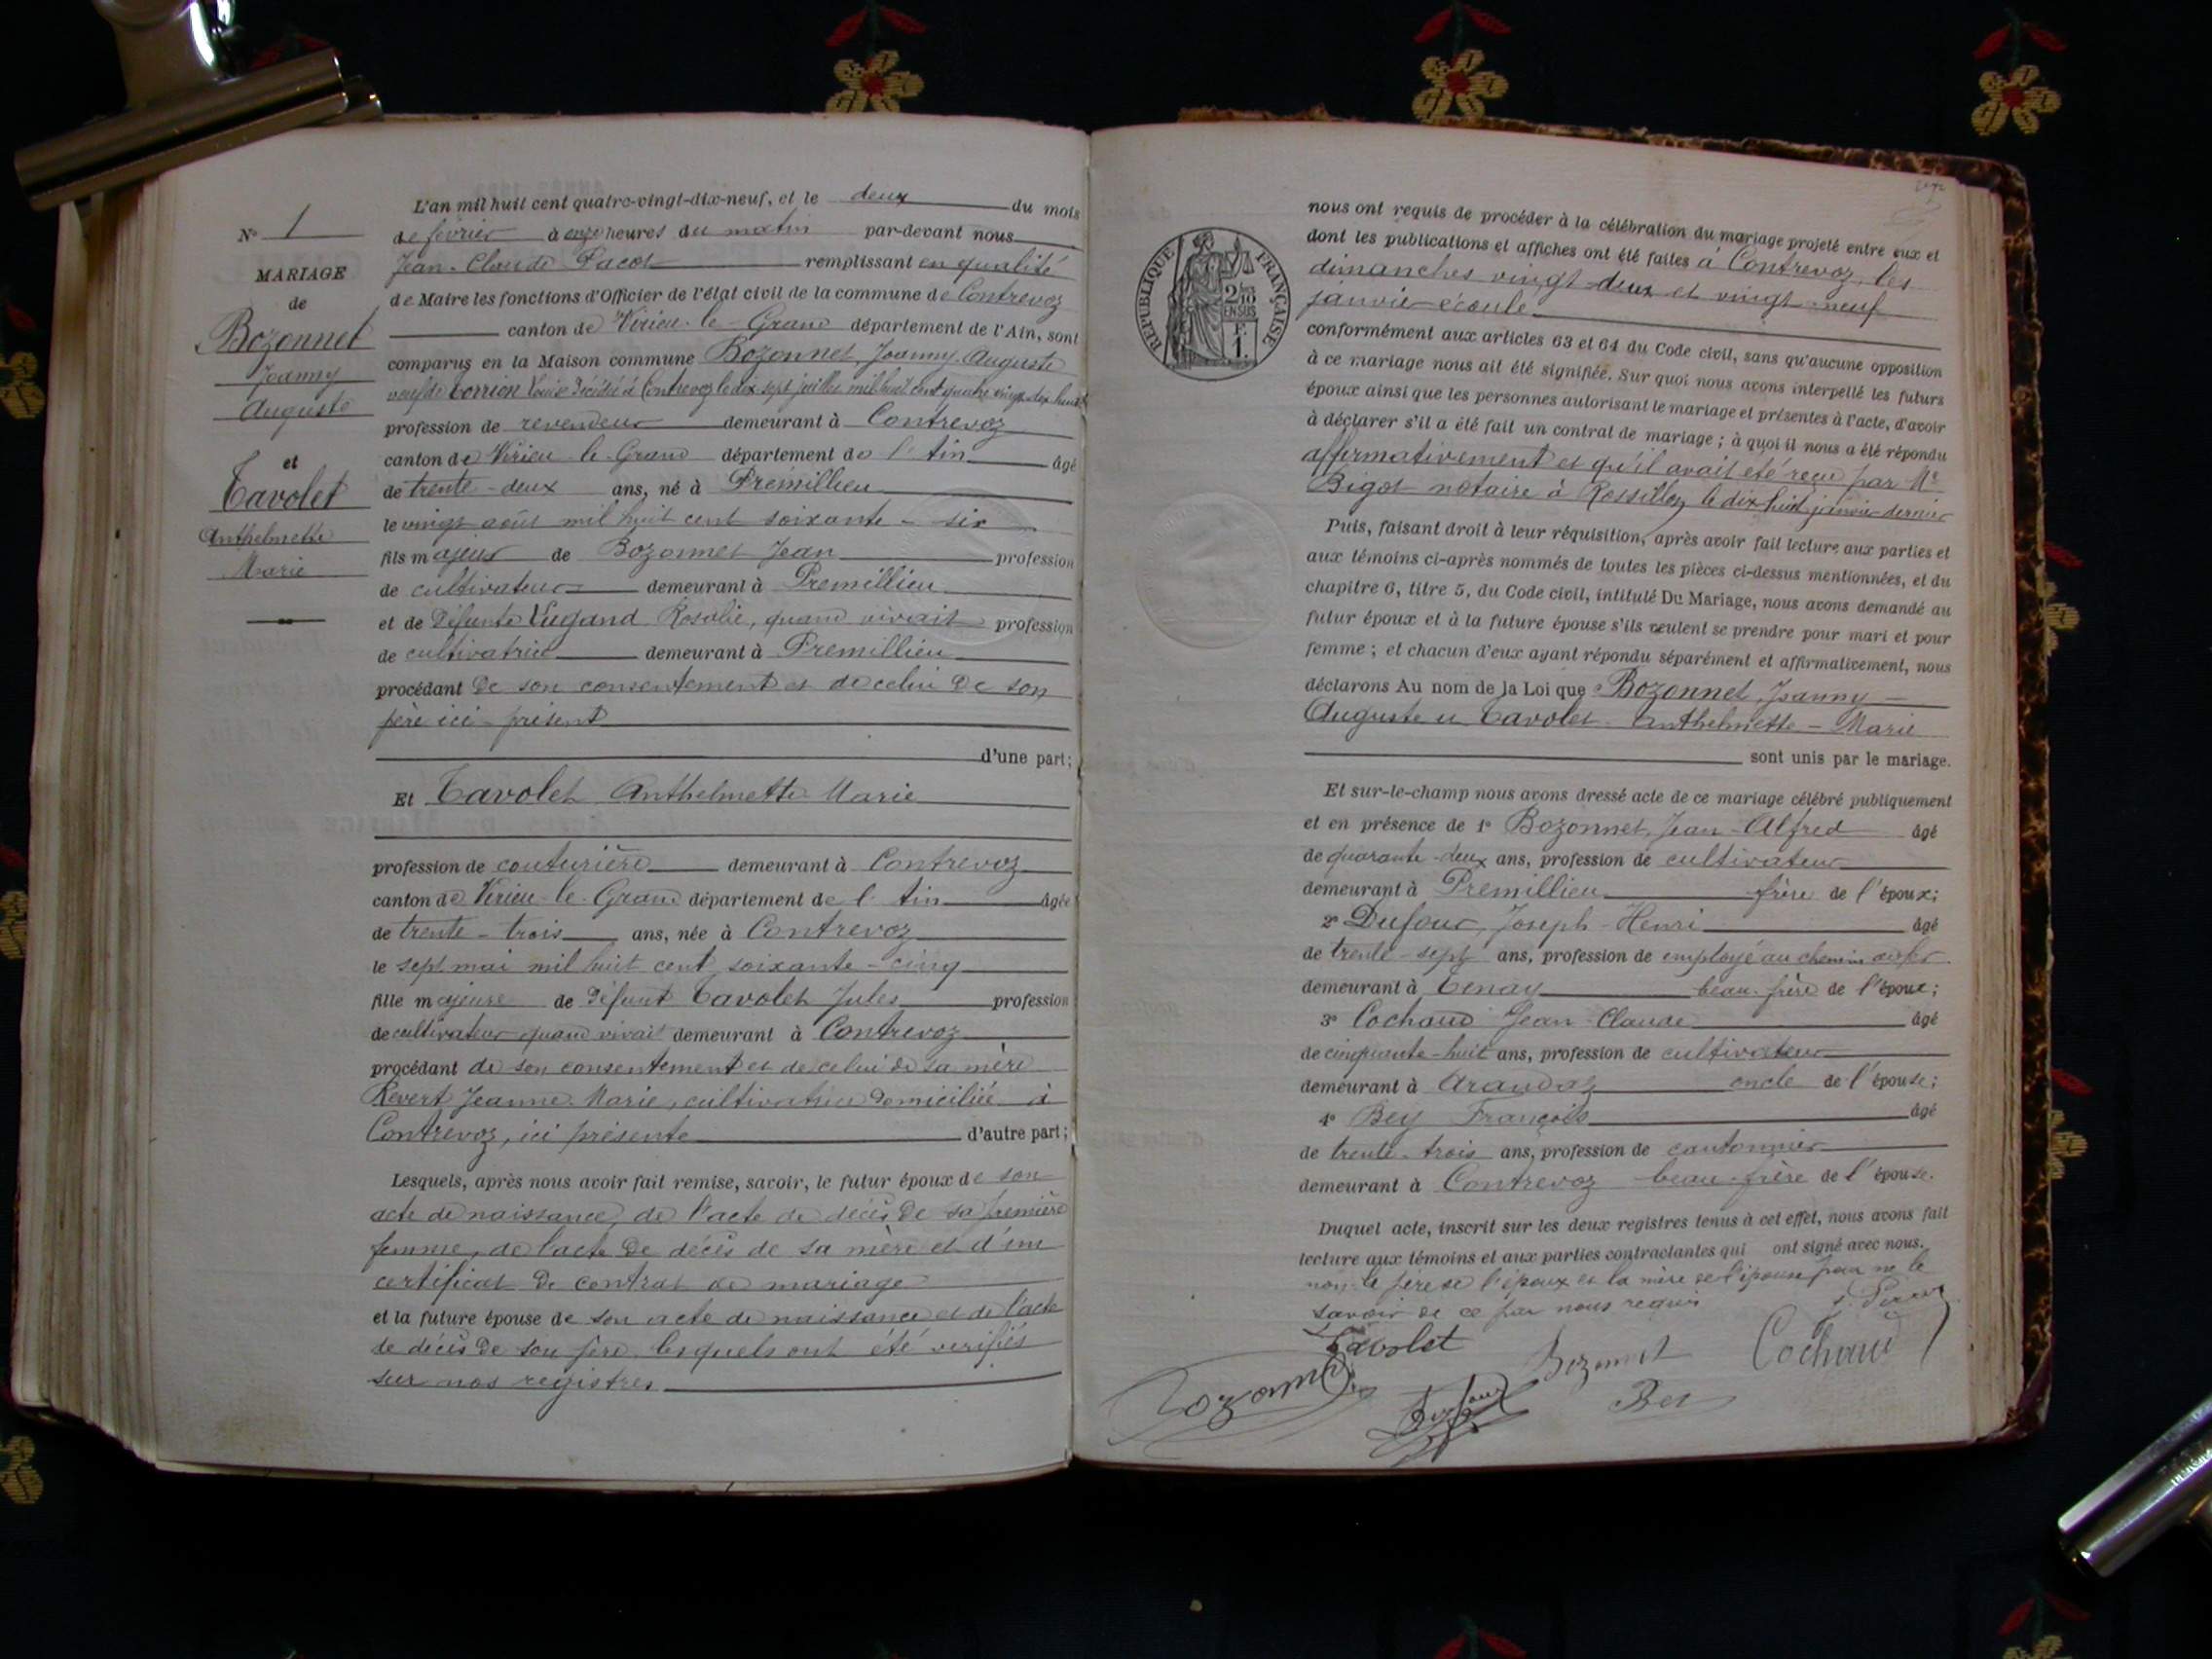 N° 1
MARIAGE
de
Bozonnet
Joanny
Auguste
et
Tavolet
Anthelmette
Marie
L'an mil huit cent quatre-vingt-dix-neuf, et le deux du mois
de février à onze heures du matin par-devant nous
Jean-Claude Pacot remplissant en qualité
de Maire les fonctions d'Officier de l'état civil de la commune de Contrevoz
canton de Virieu-le-Grand département de l'Ain, sont
comparus en la Maison commune Bozonnet, Joanny Auguste
veuf de Louise décédée à Contrevoz le dix-sept juillet mil huit cent quatre vingt dix huit
profession de revendeur demeurant à Contrevoz
canton de Virieu-le-Grand département de l'Ain âgé
de trente-deux ans, né à Prémillieu
le vingt août mil huit cent soixante-six
fils majeur de Bozonnet Jean profession
de cultivateur demeurant à Prémillieu
et de défunte Vugand Rosalie, quand vivait profession
de cultivatrice demeurant à Prémillieu
procédant de son consentement et de celui de son
père ici présent
d'une part;
Et Tavolet Anthelmette Marie
profession de couturière demeurant à Contrevoz
canton de Virieu-le-Grand département de l'Ain âgée
de trente-trois ans, née à Contrevoz
le sept mai mil huit cent soixante-cinq
fille majeure de défunt Tavolet Jules profession
de cultivateur quand vivait demeurant à Contrevoz
procédant de son consentement et de celui de sa mère
Revert Jeanne-Marie, cultivatrice domiciliée à
Contrevoz, ici présente d'autre part;
Lesquels, après nous avoir fait remise, savoir, le futur époux de son
acte de naissance, de l'acte de décès de sa première
femme, de l'acte de décès de sa mère et d'un
certificat de contrat de mariage
et la future épouse de son acte de naissance et de l'acte
de décès de son père, lesquels ont été vérifiés
sur nos registres
RÉPUBLIQUE FRANÇAISE
2/10 EN SUS
1 F.
nous ont requis de procéder à la célébration du mariage projeté entre eux et
dont les publications et affiches ont été faites à Contrevoz, les
dimanches vingt-deux et vingt-neuf
janvier écoulé
conformément aux articles 63 et 64 du Code civil, sans qu'aucune opposition
à ce mariage nous ait été signifiée. Sur quoi nous avons interpellé les futurs
époux ainsi que les personnes autorisant le mariage et présentes à l'acte, d'avoir
à déclarer s'il a été fait un contrat de mariage ; à quoi il nous a été répondu
affirmativement et qu'il avait été reçu par Me
Bigot notaire à Rossillon, le dix-huit janvier dernier
Puis, faisant droit à leur réquisition, après avoir fait lecture aux parties et
aux témoins ci-après nommés de toutes les pièces ci-dessus mentionnées, et du
chapitre 6, titre 5, du Code civil, intitulé Du Mariage, nous avons demandé au
futur époux et à la future épouse s'ils veulent se prendre pour mari et pour
femme ; et chacun d'eux ayant répondu séparément et affirmativement, nous
déclarons Au nom de la Loi que Bozonnet, Joanny-
Auguste et Tavolet Anthelmette-Marie
sont unis par le mariage.
Et sur-le-champ nous avons dressé acte de ce mariage célébré publiquement
et en présence de 1° Bozonnet, Jean-Alfred âgé
de quarante-deux ans, profession de cultivateur
demeurant à Prémillieu frère de l'époux;
2° Dufour, Joseph-Henri âgé
de trente-sept ans, profession de employé au chemin de fer
demeurant à Tenay beau-frère de l'époux;
3° Cochaud Jean-Claude âgé
de cinquante-huit ans, profession de cultivateur
demeurant à Arandaz oncle de l'épouse;
4° Bey François âgé
de trente-trois ans, profession de cantonnier
demeurant à Contrevoz beau-frère de l'épouse.
Duquel acte, inscrit sur les deux registres tenus à cet effet, nous avons fait
lecture aux témoins et aux parties contractantes qui ont signé avec nous.
non le père de l'époux et la mère de l'épouse pour ne le
savoir de ce par nous requis
Tavolet
Bozonnet
Cochaud
Bozonnet
Dufour
Bey